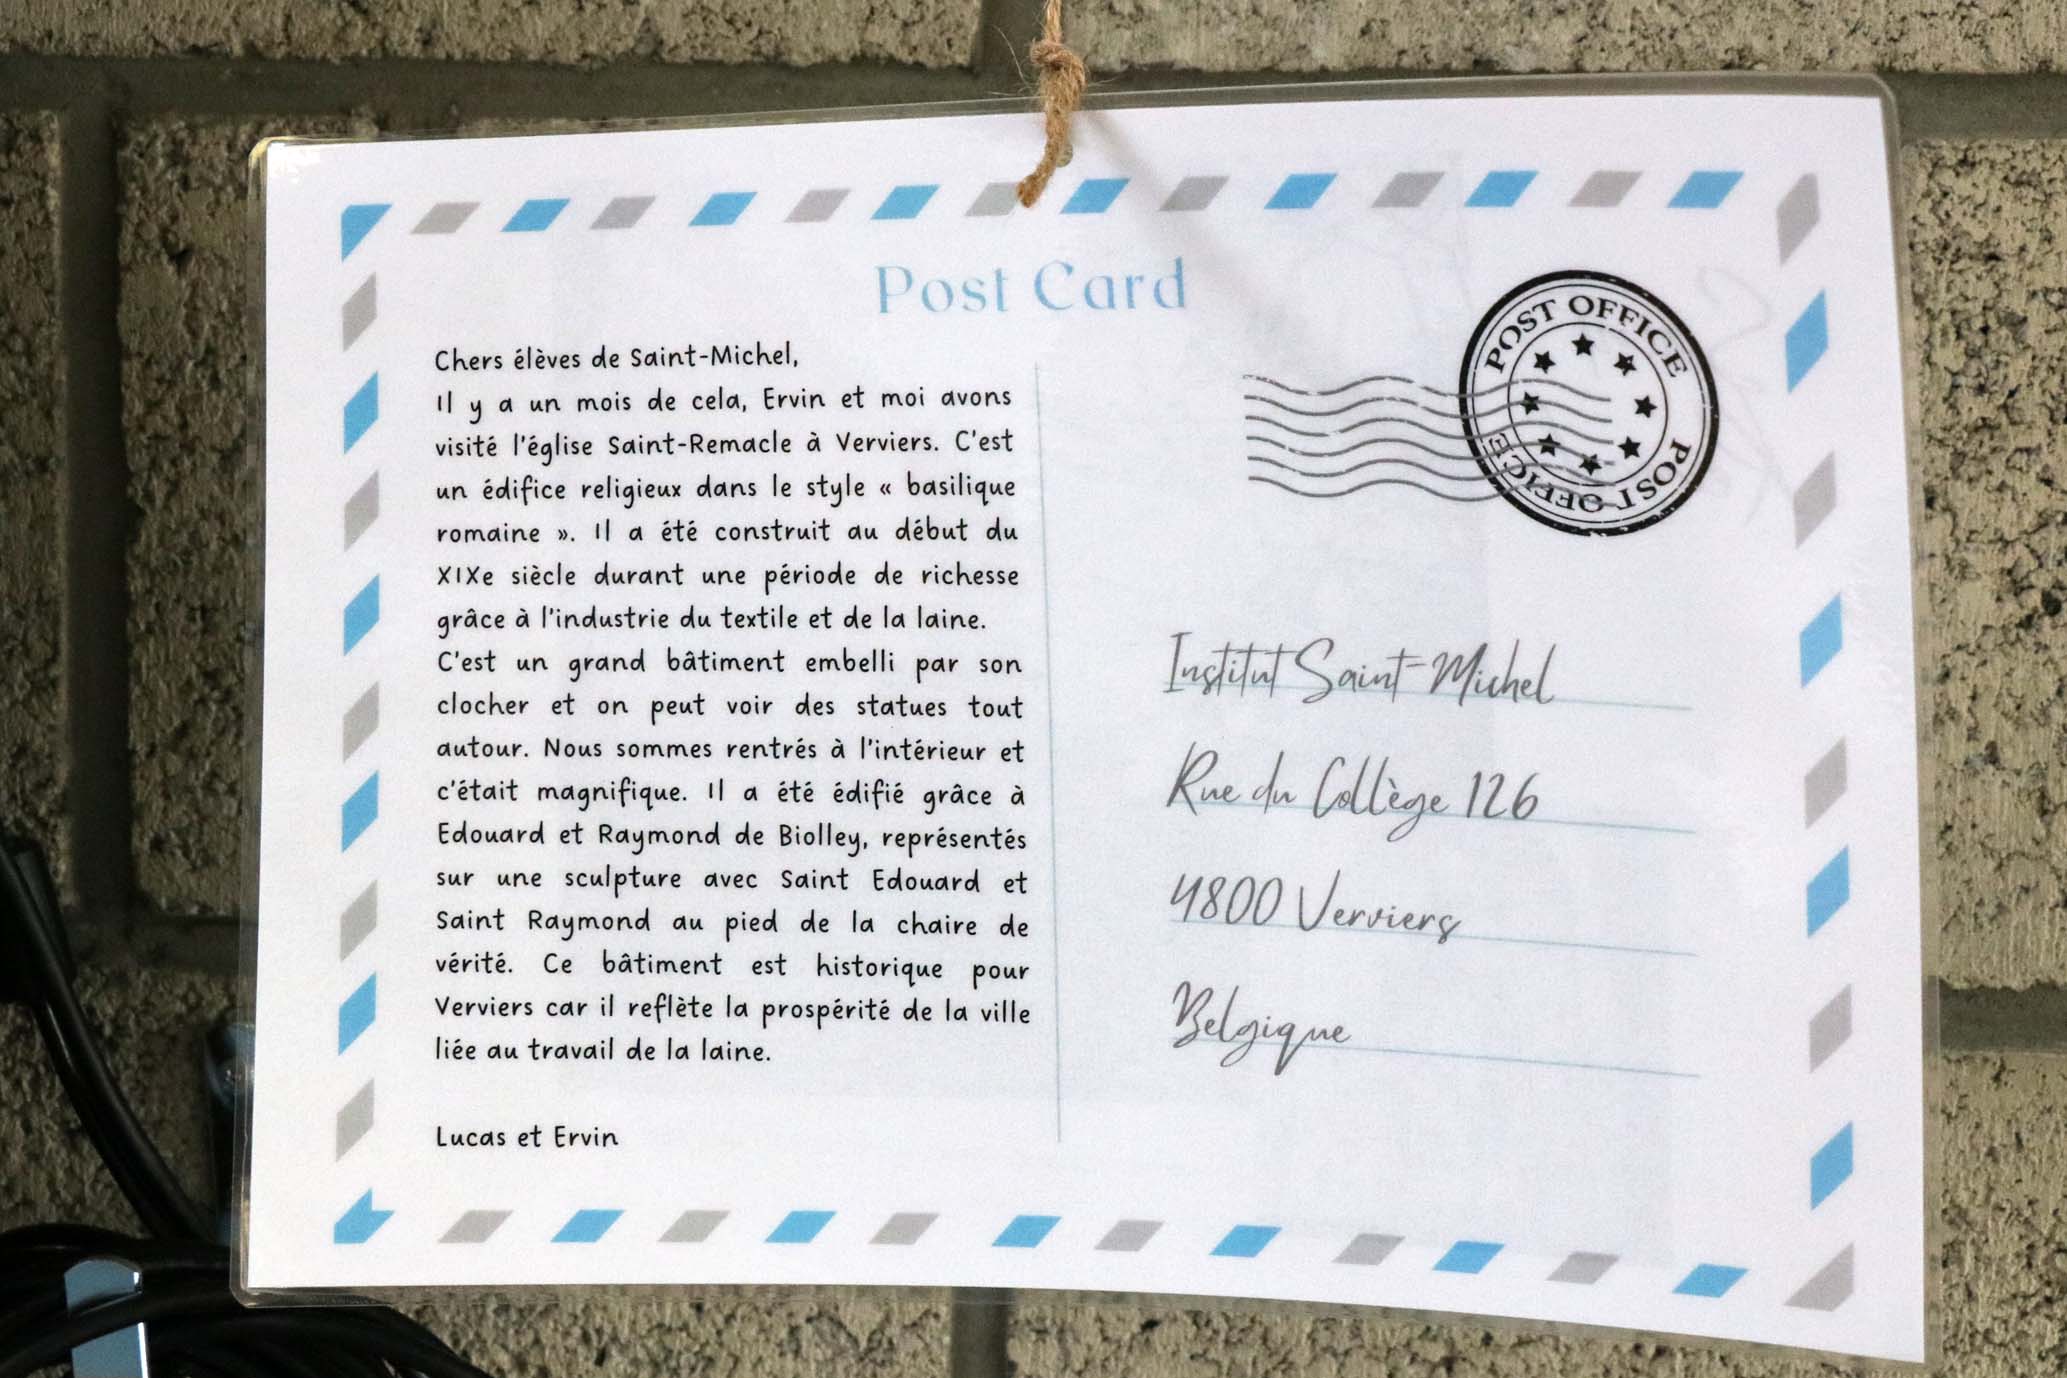 Post Card
Chers élèves de Saint-Michel,
Il y a un mois de cela, Ervin et moi avons
visité l'église Saint-Remacle à Verviers. C'est
un édifice religieux dans le style « basilique
romaine ». Il a été construit au début du
XIXe siècle durant une période de richesse
grâce à l'industrie du textile et de la laine.
C'est un grand bâtiment embelli par son
clocher et on peut voir des statues tout
autour. Nous sommes rentrés à l'intérieur et
c'était magnifique. Il a été édifié grâce à
Edouard et Raymond de Biolley, représentés
sur une sculpture avec Saint Edouard et
Saint Raymond au pied de la chaire de
vérité. Ce bâtiment est historique pour
Verviers car il reflète la prospérité de la ville
liée au travail de la laine.
Lucas et Ervin
POST OFFICE
POST OFFICE
Institut Saint-Michel
Rue du Collège 126
4800 Verviers
Belgique